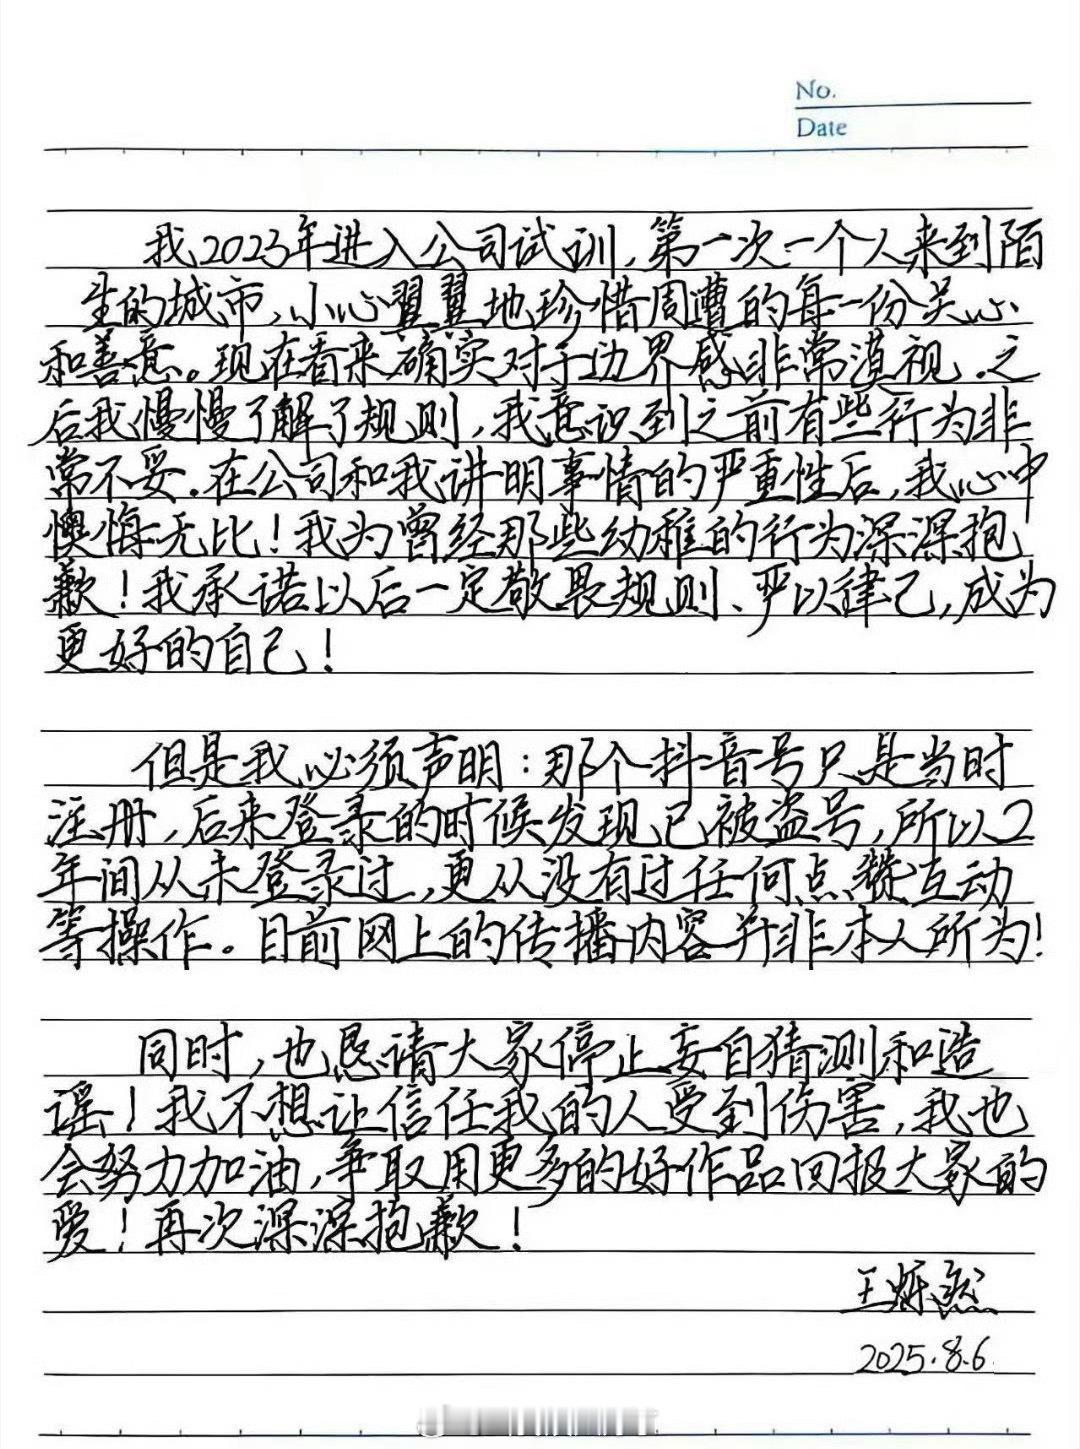 No.
Date
我2023年进入公司试训,第一次一个人来到陌
生的城市,小心翼翼地珍惜周遭的每一份关心
和善意。现在看来确实对于边界感非常漠视.之
后我慢慢了解了规则,我意识到之前有些行为非
常不妥.在公司和我讲明事情的严重性后,我心中
懊悔无比!我为曾经那些幼稚的行为深深抱
歉!我承诺以后一定敬畏规则、严以律己,成为
更好的自己!
但是我必须声明:那个抖音号只是当时
注册,后来登录的时候发现已被盗号,所以2
年间从未登录过,更从没有过任何点赞互动
等操作。目前网上的传播内容并非本人所为!
同时,也恳请大家停止妄自猜测和造
谣!我不想让信任我的人受到伤害,我也
会努力加油,争取用更多的好作品回报大家的
爱!再次深深抱歉!
王烁然
2025.8.6